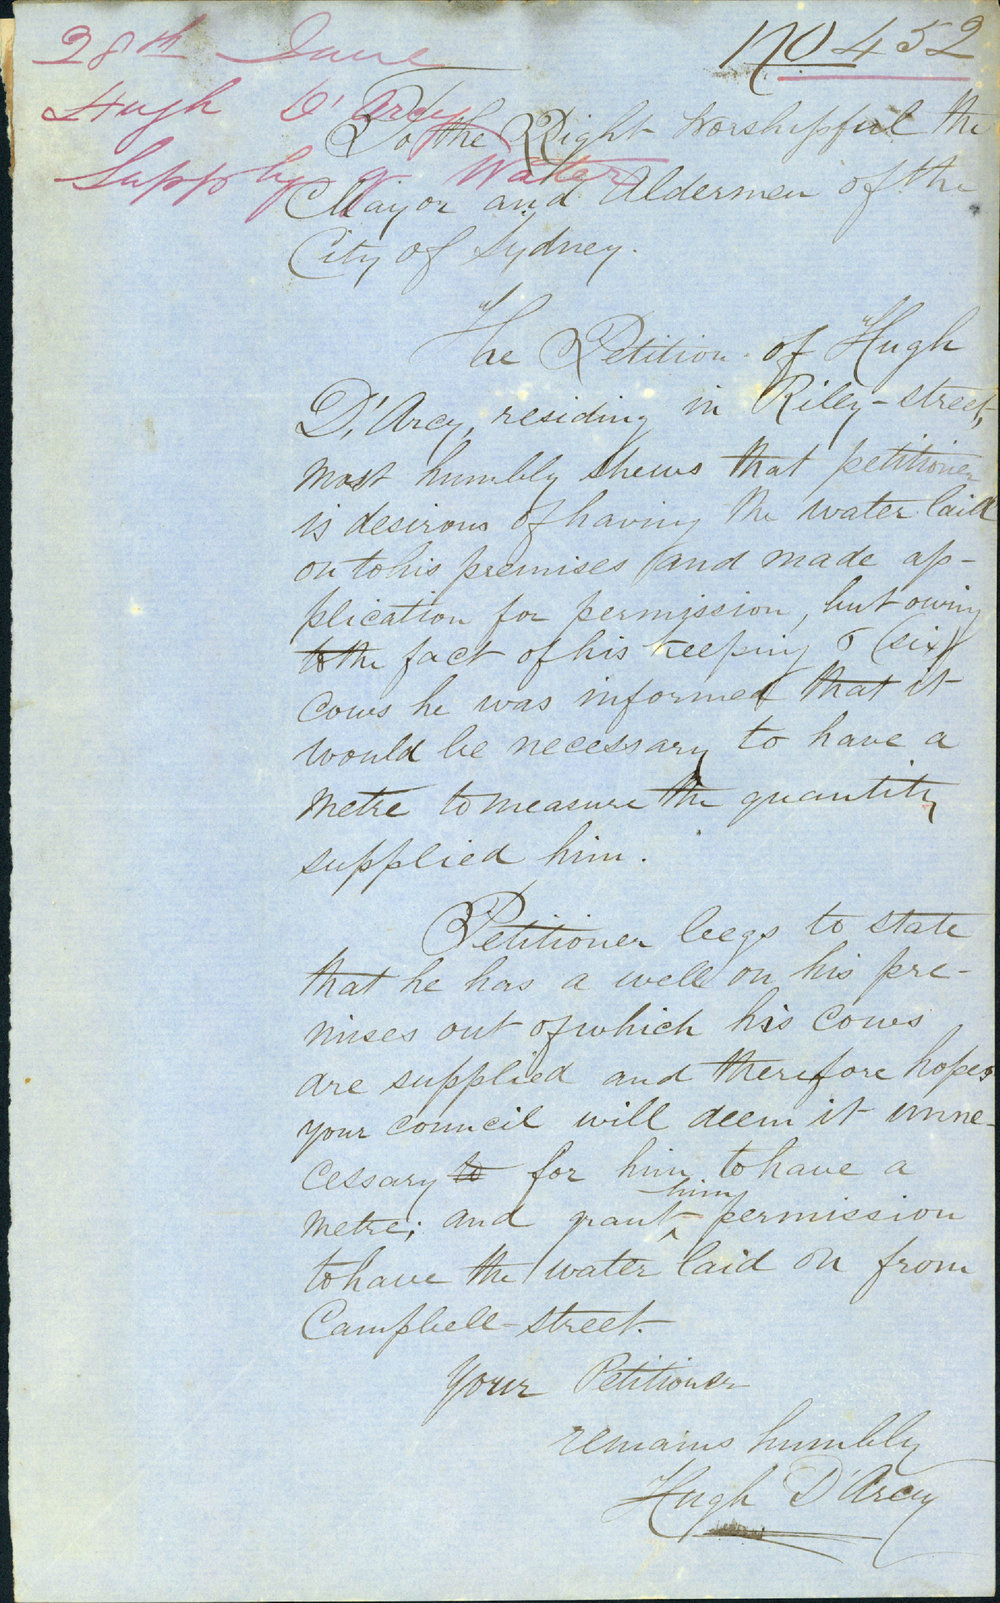 28th June
No 452
Hugh D'Arcy
Supply of Water
To the Right Worshipful the
Mayor and Aldermen of the
City of Sydney.
The Petition of Hugh
D'Arcy, residing in Riley-street,
most humbly shews that petitioner
is desirous of having the water laid
on to his premises and made ap-
plication for permission, but owing
to the fact of his keeping 6 (six)
cows he was informed that it
would be necessary to have a
metre to measure the quantity
supplied him.
Petitioner begs to state
that he has a well on his pre-
mises out of which his cows
are supplied and therefore hopes
your council will deem it unne-
cessary to for him to have a
metre; and grant him permission
to have the water laid on from
Campbell-street.
Your Petitioner
remains humbly
Hugh D'Arcy